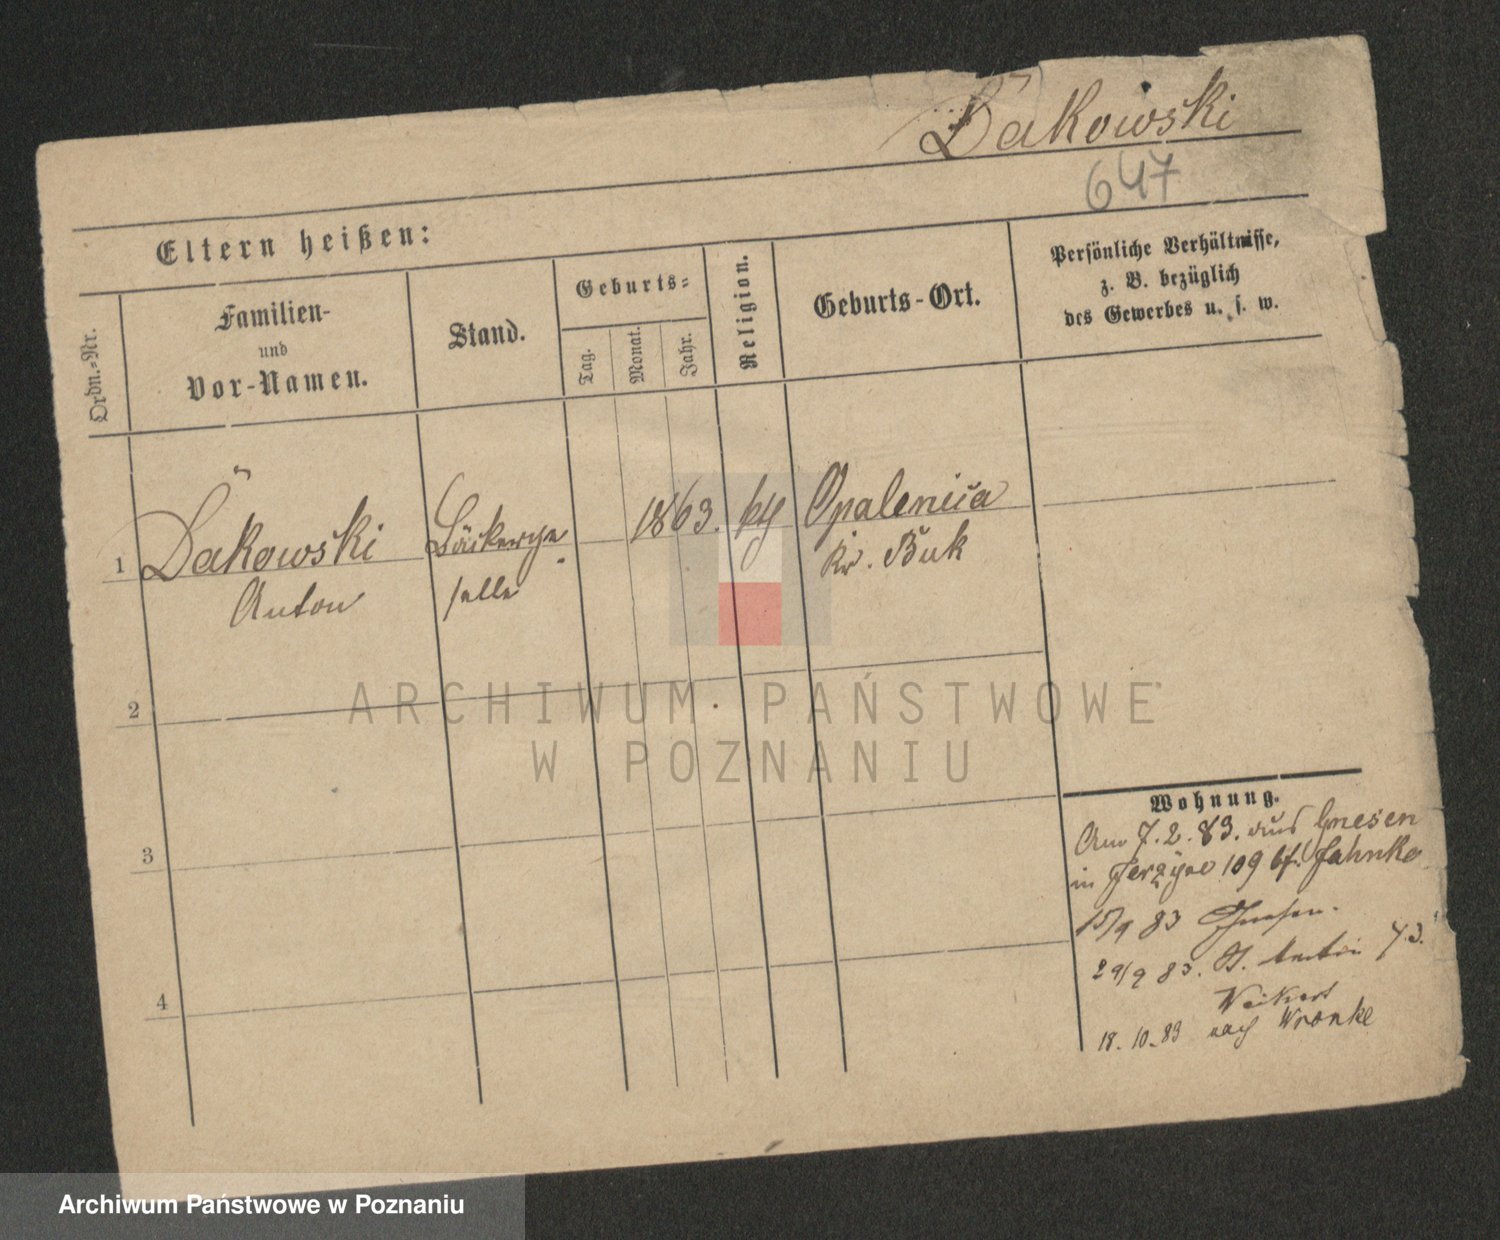 Däkowski
647
Eltern heißen:
Ordn.-Nr.
Familien-
und
Vor-Namen.
Stand.
Geburts-
Tag.
Monat.
Jahr.
Religion.
Geburts-Ort.
Persönliche Verhältnisse,
z. B. bezüglich
des Gewerbes u. s. w.
1 Däkowski Bäckerge 1863. kth Opalenica
Anton selle Kr. Buk
2
3
4
Wohnung.
Am 7.2.83. aus Gnesen
in Jerzyce 109 bei Jahnke
15/9 83 Gnesen.
29/9 83. St. Martin 73.
Weikert
18.10.83 nach Wronke
ARCHIWUM PAŃSTWOWE
W POZNANIU
Archiwum Państwowe w Poznaniu